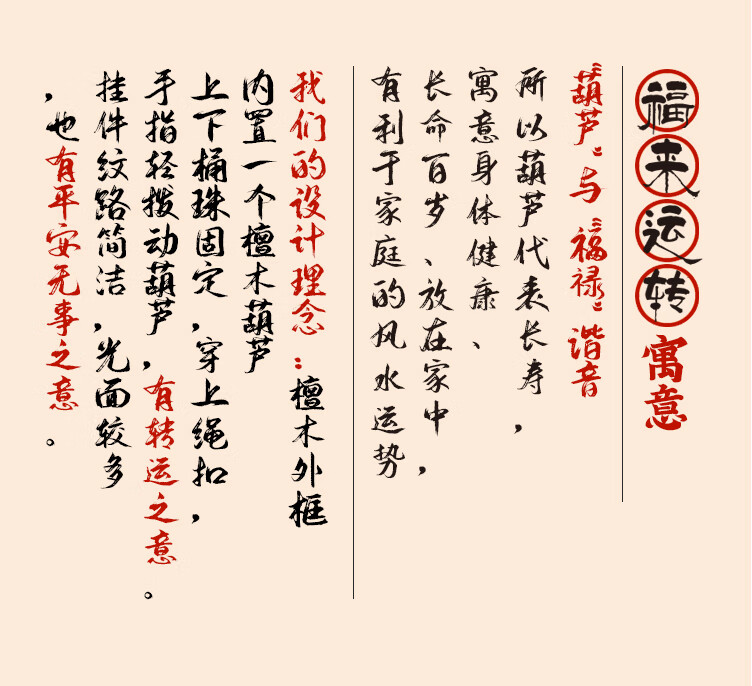 福来运转寓意
“葫芦”与“福禄”谐音
所以葫芦代表长寿，
寓意身体健康、
长命百岁、放在家中，
有利于家庭的风水运势
我们的设计理念：檀木外框
内置一个檀木葫芦
上下桶珠固定，穿上绳扣，
手指轻拨动葫芦，有转运之意。
挂件纹路简洁，光面较多
，也有平安无事之意。